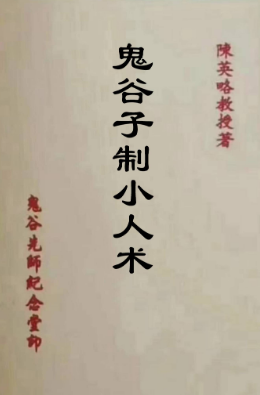 陳英略教授著
鬼谷子制小人术
鬼谷先師紀念堂印